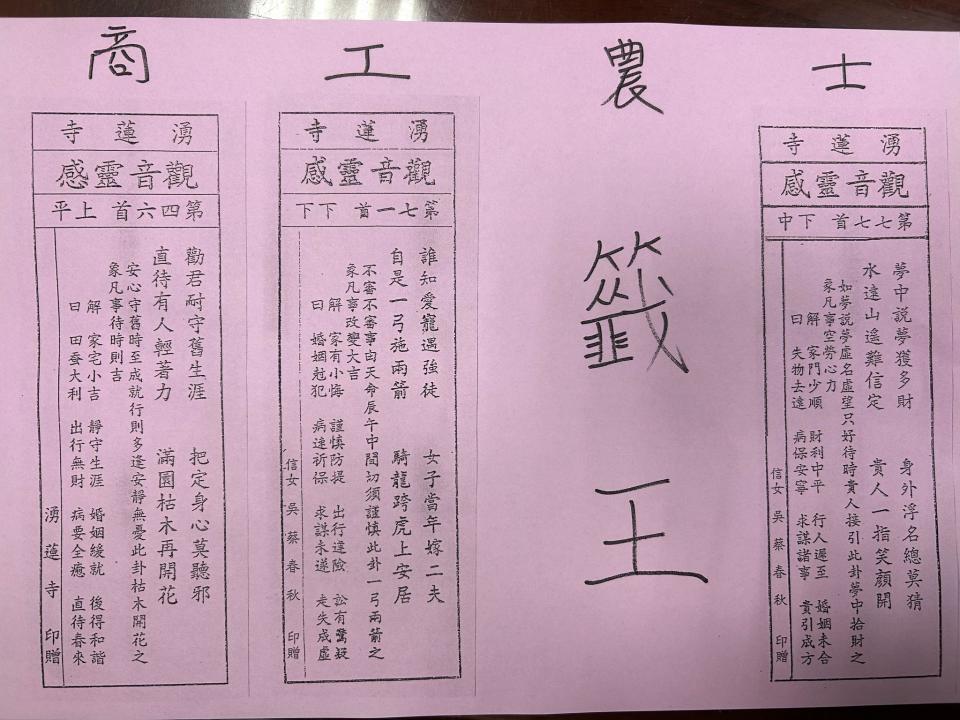 士
湧蓮寺
觀音靈感
第七七首 下中
夢中說夢獲多財 身外浮名總莫猜
水遠山遙難信定 貴人一指笑顏開
如夢說夢虛名虛望只好待時貴人接引此卦夢中拾財之
象凡事空勞心力
解 家門少順 財利中平 行人遲至 婚姻未合
曰 失物去遠 病保安寧 求謀諸事 貴引成方
信女 吳蔡春秋 印贈
農
籤王
工
湧蓮寺
觀音靈感
第七一首 下下
誰知愛寵遇強徒 女子當年嫁二夫
自是一弓施兩箭 騎龍跨虎上安居
不審不審事由天命辰午中間切須謹慎此卦一弓兩箭之
象凡事改變大吉
解 家有小悔 謹慎防提 出行違險 訟有驚疑
曰 婚姻尅犯 病速祈保 求謀未遂 走失成虛
信女 吳蔡春秋 印贈
商
湧蓮寺
觀音靈感
第四六首 上平
勸君耐守舊生涯 把定身心莫聽邪
直待有人輕著力 滿園枯木再開花
安心守舊時至成就行則多逢安靜無憂此卦枯木開花之
象凡事待時則吉
解 家宅小吉 靜守生涯 婚姻緩就 後得和諧
曰 田蚕大利 出行無財 病要全癒 直待春來
湧蓮寺 印贈